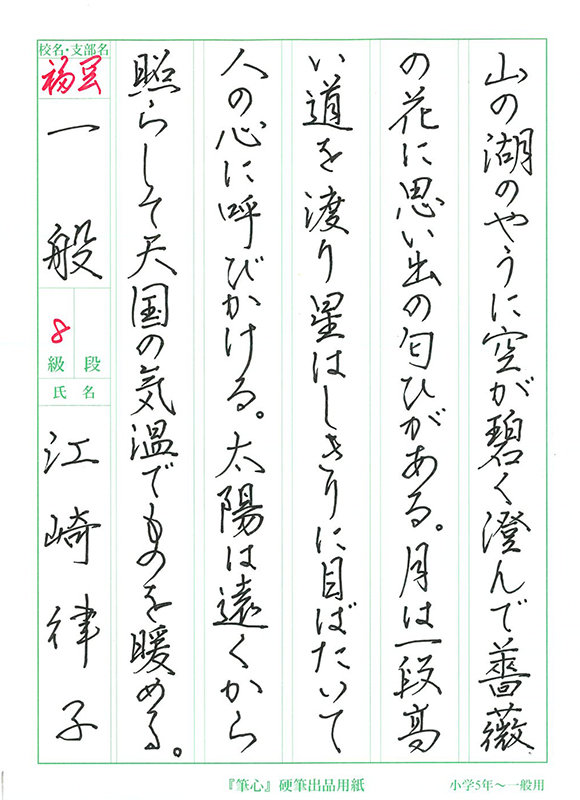 山の湖のやうに空が碧く澄んで薔薇
の花に思い出の匂ひがある。月は一段高
い道を渡り星はしきりに目ばたいて
人の心に呼びかける。太陽は遠くから
照らして天国の気温でものを暖める。
校名・支部名
福岡
一般
8
級 段
氏名
江崎律子
『筆心』硬筆出品用紙
小学5年～一般用